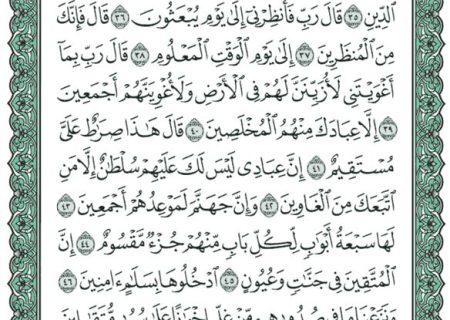 ٱلدِّينِ ٣٥ قَالَ رَبِّ فَأَنظِرْنِىٓ إِلَىٰ يَوْمِ يُبْعَثُونَ ٣٦ قَالَ فَإِنَّكَ
مِنَ ٱلْمُنظَرِينَ ٣٧ إِلَىٰ يَوْمِ ٱلْوَقْتِ ٱلْمَعْلُومِ ٣٨ قَالَ رَبِّ بِمَآ
أَغْوَيْتَنِى لَأُزَيِّنَنَّ لَهُمْ فِى ٱلْأَرْضِ وَلَأُغْوِيَنَّهُمْ أَجْمَعِينَ
٣٩ إِلَّا عِبَادَكَ مِنْهُمُ ٱلْمُخْلَصِينَ ٤٠ قَالَ هَٰذَا صِرَٰطٌ عَلَىَّ
مُسْتَقِيمٌ ٤١ إِنَّ عِبَادِى لَيْسَ لَكَ عَلَيْهِمْ سُلْطَٰنٌ إِلَّا مَنِ
ٱتَّبَعَكَ مِنَ ٱلْغَاوِينَ ٤٢ وَإِنَّ جَهَنَّمَ لَمَوْعِدُهُمْ أَجْمَعِينَ ٤٣
لَهَا سَبْعَةُ أَبْوَٰبٍ لِّكُلِّ بَابٍ مِّنْهُمْ جُزْءٌ مَّقْسُومٌ ٤٤ إِنَّ
ٱلْمُتَّقِينَ فِى جَنَّٰتٍ وَعُيُونٍ ٤٥ ٱدْخُلُوهَا بِسَلَٰمٍ ءَامِنِينَ ٤٦
وَنَزَعْنَا مَا فِى صُدُورِهِم مِّنْ غِلٍّ إِخْوَٰنًا عَلَىٰ سُرُرٍ مُّتَقَٰبِلِينَ